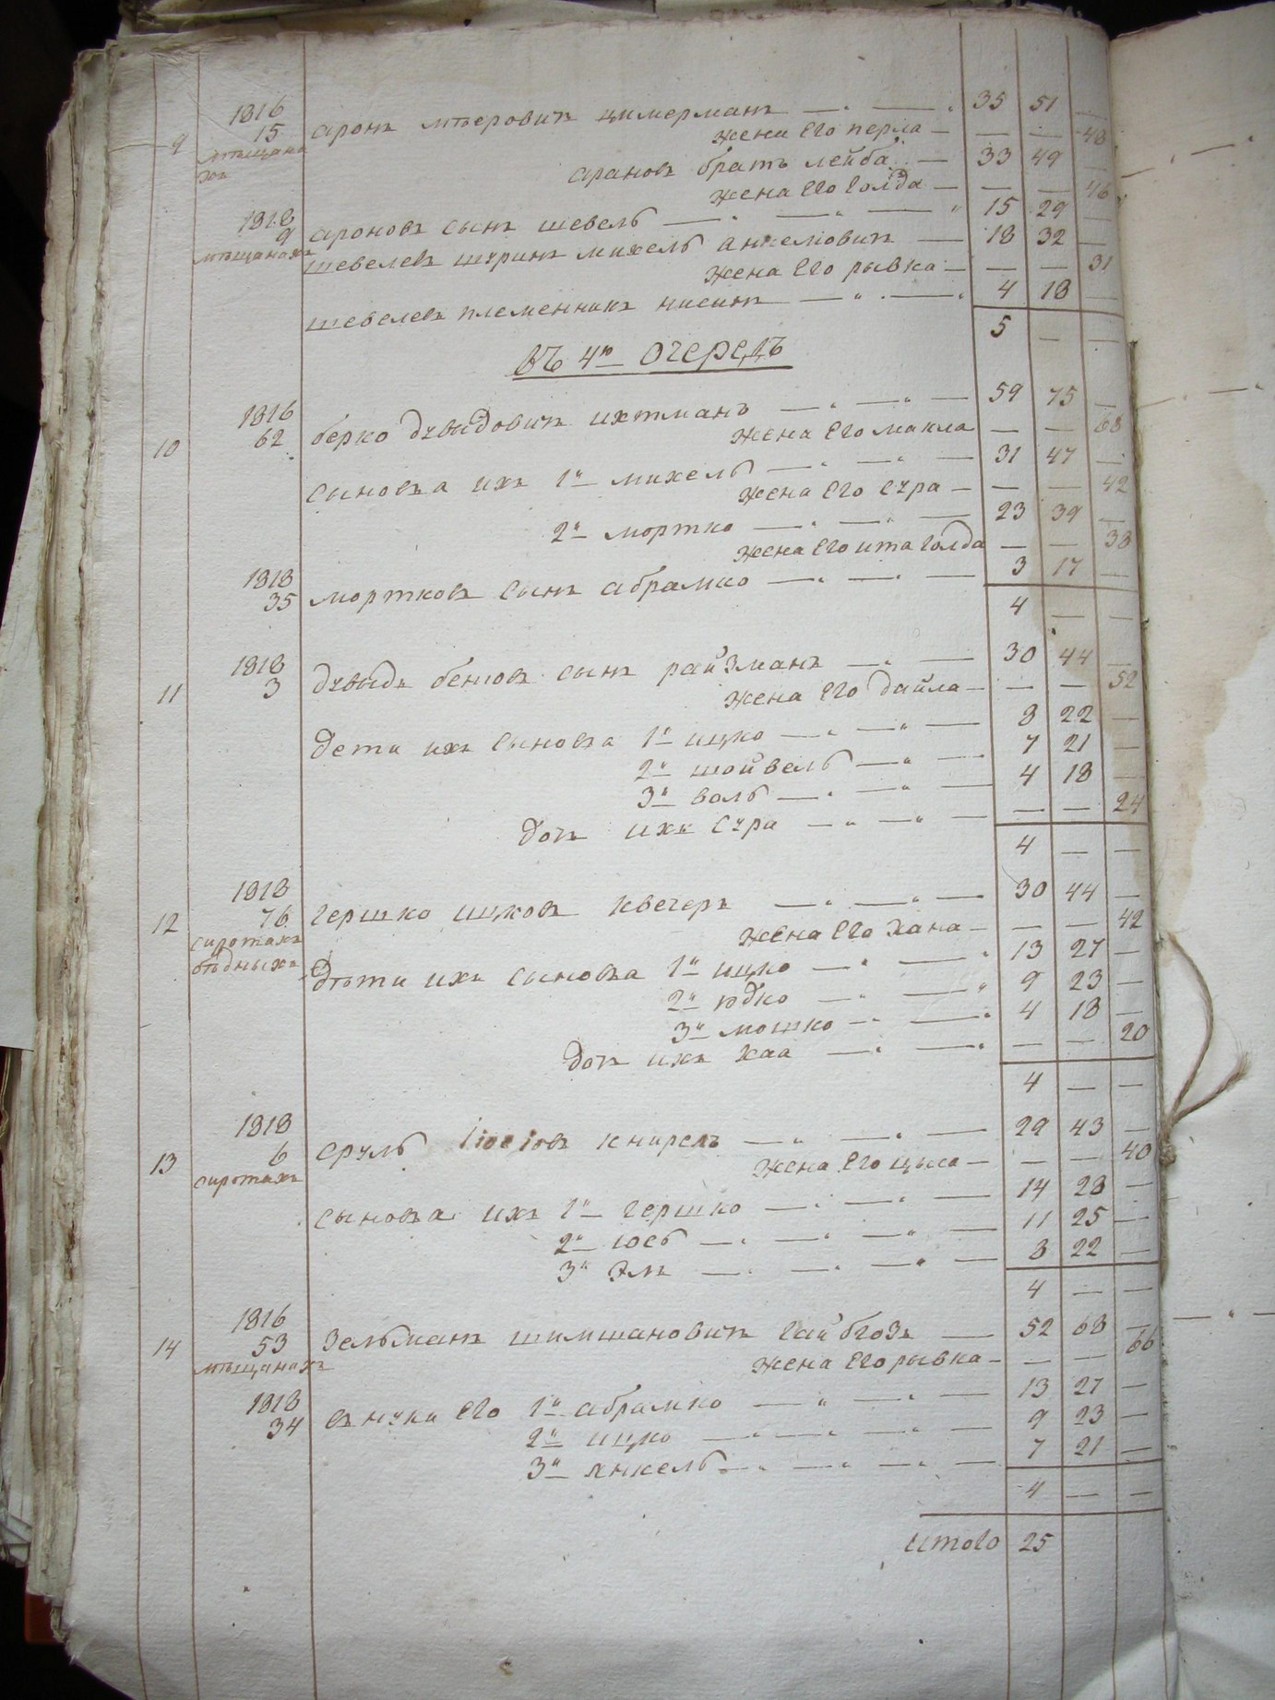 1816
9 15 аронъ мѣеровичъ цимерманъ — 35 51 —
мѣщана
хъ
жена Его перла — — — 48
ароновъ братъ лейба — 33 49 —
жена Его Голда — — — 46
1818
9 ароновъ сынъ шевель — 15 29 —
мѣщанахъ
шевелевъ шуринъ михель анкелiовичъ — 18 32 —
жена Его рывка — — — 31
шевелевъ племенникъ нисинъ — 4 18 —
5 — —
въ 4ю очередь
1816
10 62 берко дувидовичъ ихтманъ — 59 75 —
жена Его макла — — 68
сыновья ихъ 1й михель — 31 47 —
жена Его сура — — — 42
2й мортко — 23 39 —
жена Его ита голда — — 38
1818
35 мортковъ сынъ абрамко — 3 17 —
4 — —
1818
11 3 дувыдъ бенiовъ сынъ райзманъ — 30 44 —
жена Его дайла — — — 52
дети ихъ сыновья 1й ицко — 8 22 —
2й шойвель — 7 21 —
3й воль — 4 18 —
дочь ихъ сура — — — 24
4 — —
1818
12 76 гершко ицковъ квечеръ — 30 44 —
сиротахъ
бѣдныхъ
жена Его хана — — — 42
дѣти ихъ сыновья 1й ицко — 13 27 —
2й юдко — 9 23 —
3й мошко — 4 18 —
дочь ихъ хая — — — 20
4 — —
1818
13 6 сруль iосiовъ книрель — 29 43 —
сиротахъ
жена Его цыса — — — 40
сыновья ихъ 1й гершко — 14 28 —
2й iось — 11 25 —
3й эль — 8 22 —
4 — —
1816
14 53 зельманъ шимшановичъ гайбгозъ — 52 68 —
мѣщанахъ
жена Его рывка — — — 66
1818
34 внуки Его 1й абрамко — 13 27 —
2й ицко — 9 23 —
3й янкель — 7 21 —
4 — —
итого 25